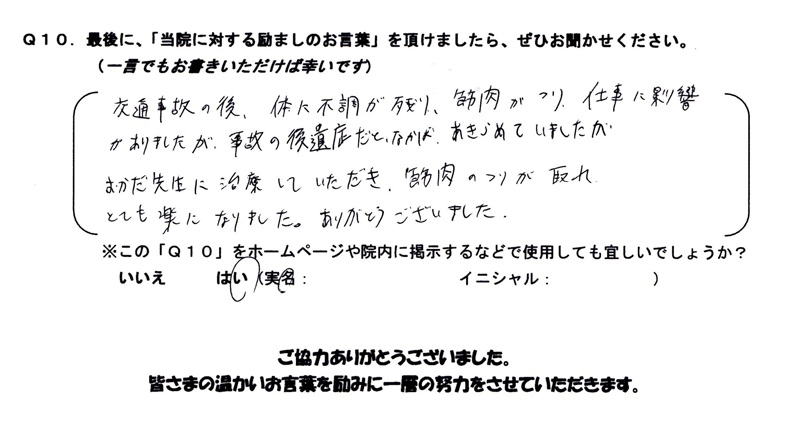 Q10. 最後に、「当院に対する励ましのお言葉」を頂けましたら、ぜひお聞かせください。
(一言でもお書きいただけば幸いです)
交通事故の後、体に不調が残り、筋肉がつり、仕事に影響
がありましたが、事故の後遺症だと、なかば、あきらめていましたが
おかだ先生に治療していただき、筋肉のつりが取れ
とても楽になりました。ありがとうございました。
※この「Q10」をホームページや院内に掲示するなどで使用しても宜しいでしょうか?
いいえ はい (実名: イニシャル: )
ご協力ありがとうございました。
皆さまの温かいお言葉を励みに一層の努力をさせていただきます。